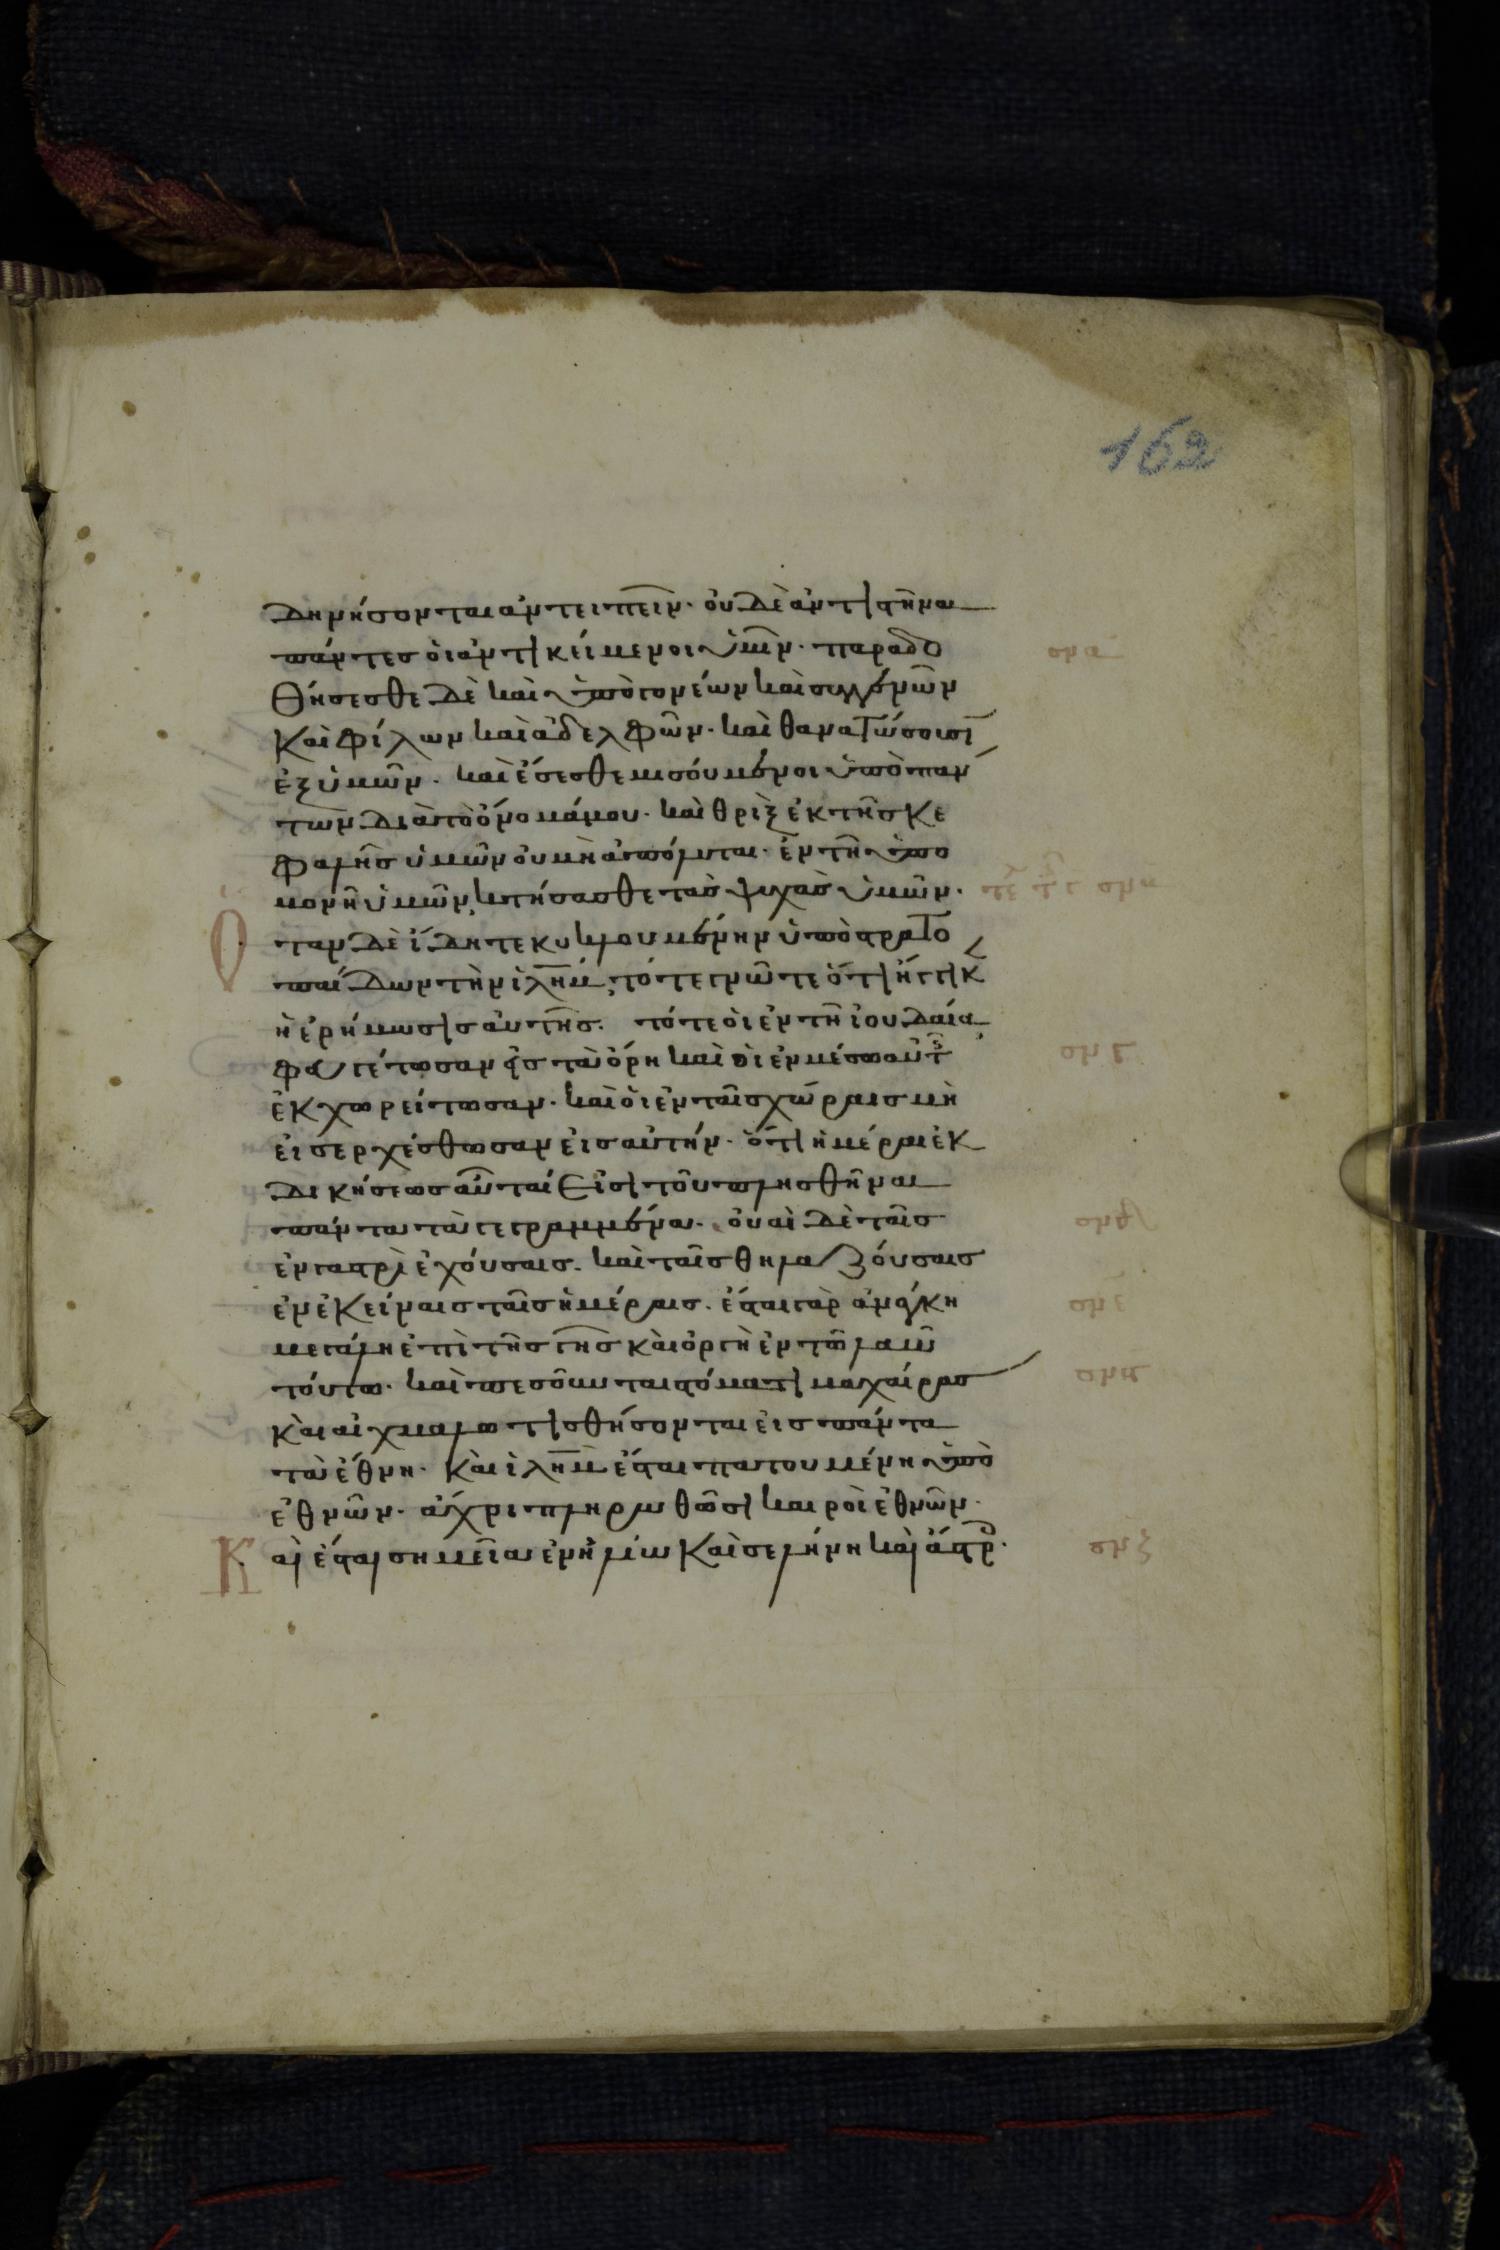 162
δημήσονται ἀντειπεῖν· οὐδὲ ἀντιστῆναι
πάντες ὁι ἀντικείμενοι ὑμῖν· παραδο
θήσεσθε δὲ καὶ ὑπὸ γονέων καὶ συγγενῶν
καὶ φίλων καὶ ἀδελφῶν· καὶ θανατώσουσι
ἐξ ὑμῶν· καὶ ἔσεσθε μισούμενοι ὑπὸ παν
των διὰ τὸ ὄνομά μου· καὶ θρὶξ ἐκ τῆς κε
φαλῆς ὑμῶν οὐ μὴ ἀπόληται· ἐν τῆ ὑπο
μονῆ ὑμῶν, κτήσασθε τὰς ψυχὰς ὑμῶν·
Ὅταν δὲ ἴδητε κυκλουμένην ὑπὸ στρατο
παίδων τὴν ἰλημ, τότε γνῶτε ὅτι ἤγγικ
ἡ ἐρήμωσις αὐτῆς· τότε ὁι ἐν τῆ ἰουδαία
φευγέτωσαν εἰς τὰ ὄρη καὶ ὁι ἐν μέσω αὐτ
ἐκχωρείτωσαν· καὶ ὁι ἐν ταῖς χώραις μὴ
εἰσερχέσθωσαν εἰς αὐτήν· ὅτι ἡμέραι ἐκ
δικήσεως αὗται εἰσι τοῦ πλησθῆναι
πάντα τὰ γεγραμμένα· οὐαὶ δὲ ταῖς
ἐν γαστρὶ ἐχούσαις· καὶ ταῖς θηλαζούσαις
ἐν ἐκείναις ταῖς ἡμέραις· ἔσται γὰρ ἀνάγκη
μεγάλη ἐπὶ τῆς γῆς καὶ ὀργὴ ἐν τῶ λαῶ
τούτω· καὶ πεσοῦνται στόματι μαχαίρας
καὶ αἰχμαλωτισθήσονται εἰς πάντα
τὰ ἔθνη· καὶ ἰλημ ἔσται πατουμένη ὑπὸ
ἐθνῶν· ἄχρι πληρωθῶσι καιροὶ ἐθνῶν·
Και ἔσται σημεῖα ἐν ἡλίω καὶ σελήνη καὶ ἄστρ·